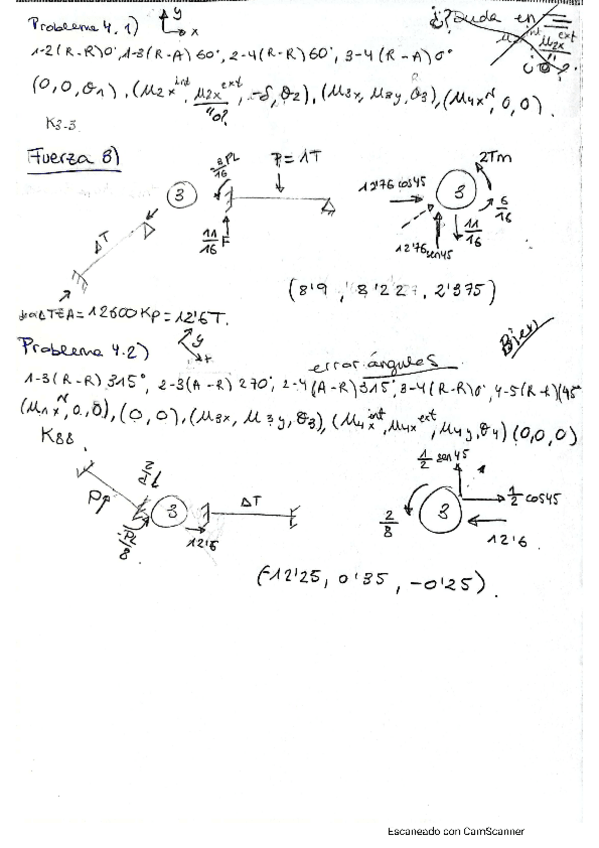 Problema 4.1) y x
¿? Duda en
1-2 (R-R) 0°, 1-3 (R-A) 60°, 2-4 (R-R) 60°, 3-4 (R-A) 0°
(0,0,θ1), (μ2x int, μ2x ext, -δ, θ2), (μ3x, μ3y, θ3), (μ4x N, 0, 0).
"0?
K3-3
Fuerza 8)
3/16 PL
P = 1T
3
ΔT
11/16 F
12'76 cos45
3
2Tm
6/16
11/16
12'76 sen45
(8'9, 8'227, 2'375)
ΔTEA = 12600 Kp = 12'6T.
Problema 4.2) y x
error ángulos
Bien
1-3 (R-R) 315°, 2-3 (A-R) 270°, 2-4 (A-R) 315°, 3-4 (R-R) 0°, 4-5 (R-R) (45°
(μ1x N, 0, 0), (0,0), (μ3x, μ3y, θ3), (μ4x int, μ4x ext, μ4y, θ4) (0,0,0)
K88
P
PL/8
3
ΔT
12'6
1/2 sen45
1/2 cos45
3
2/8
12'6
(-12'25, 0'35, -0'25).
Escaneado con CamScanner